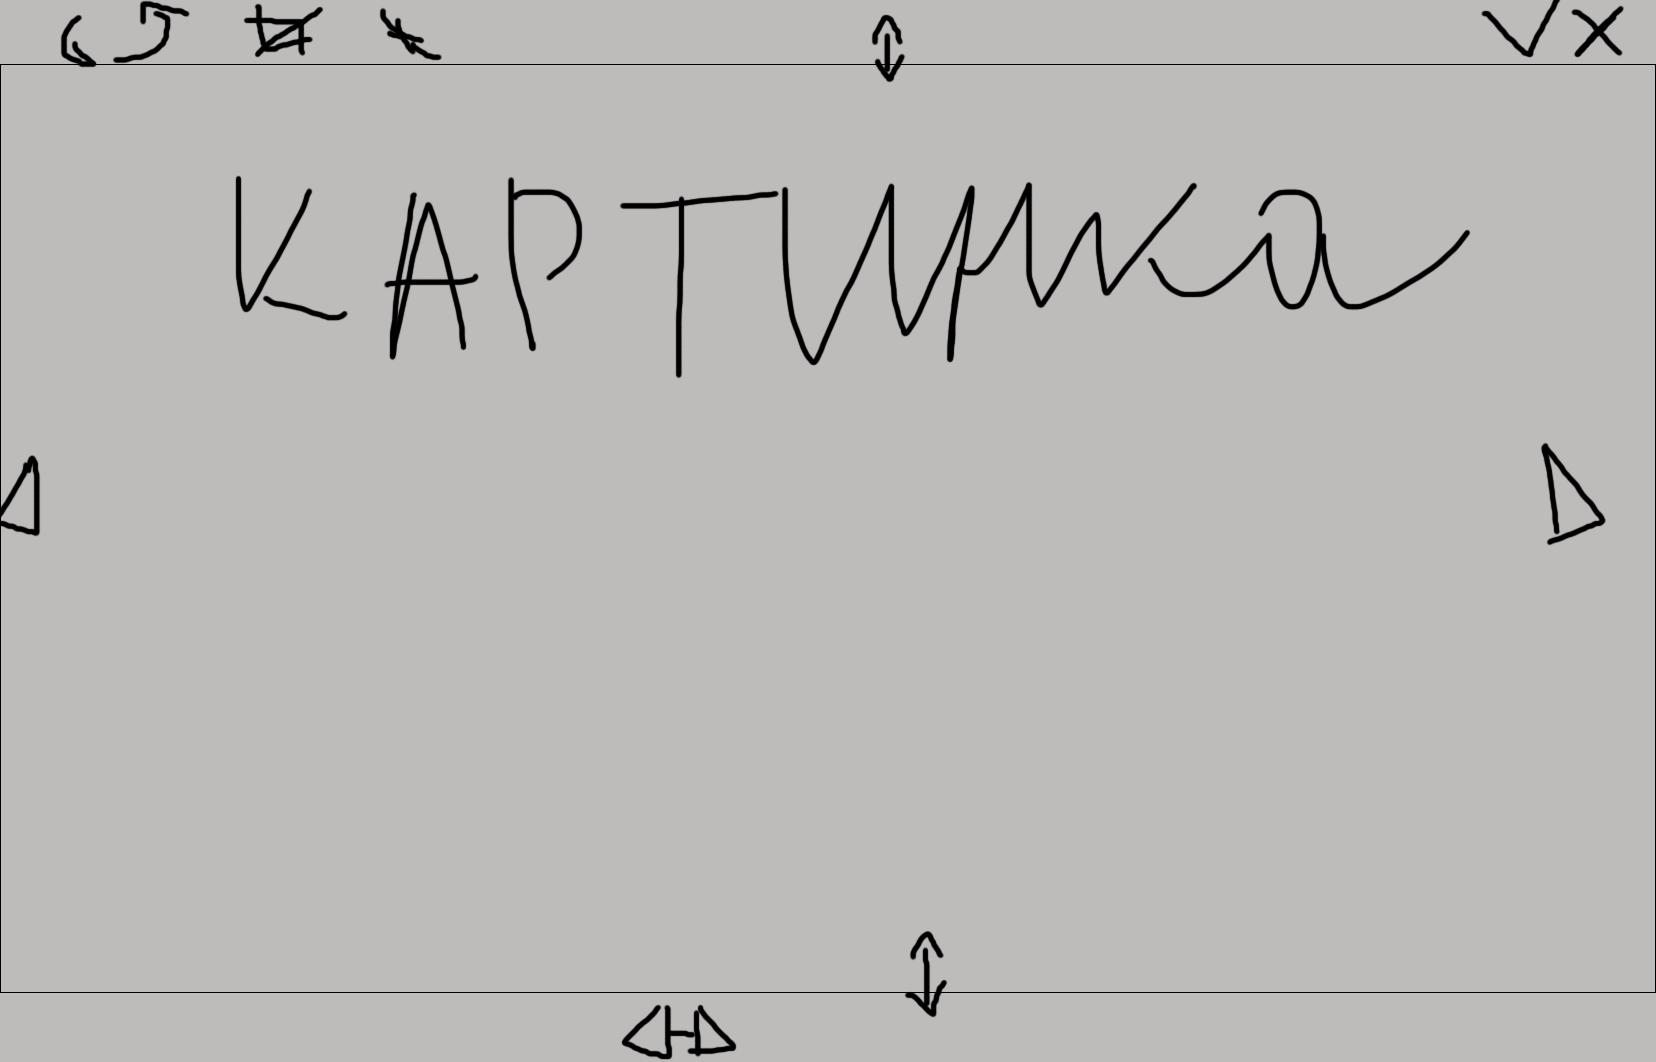 КАРТИНка